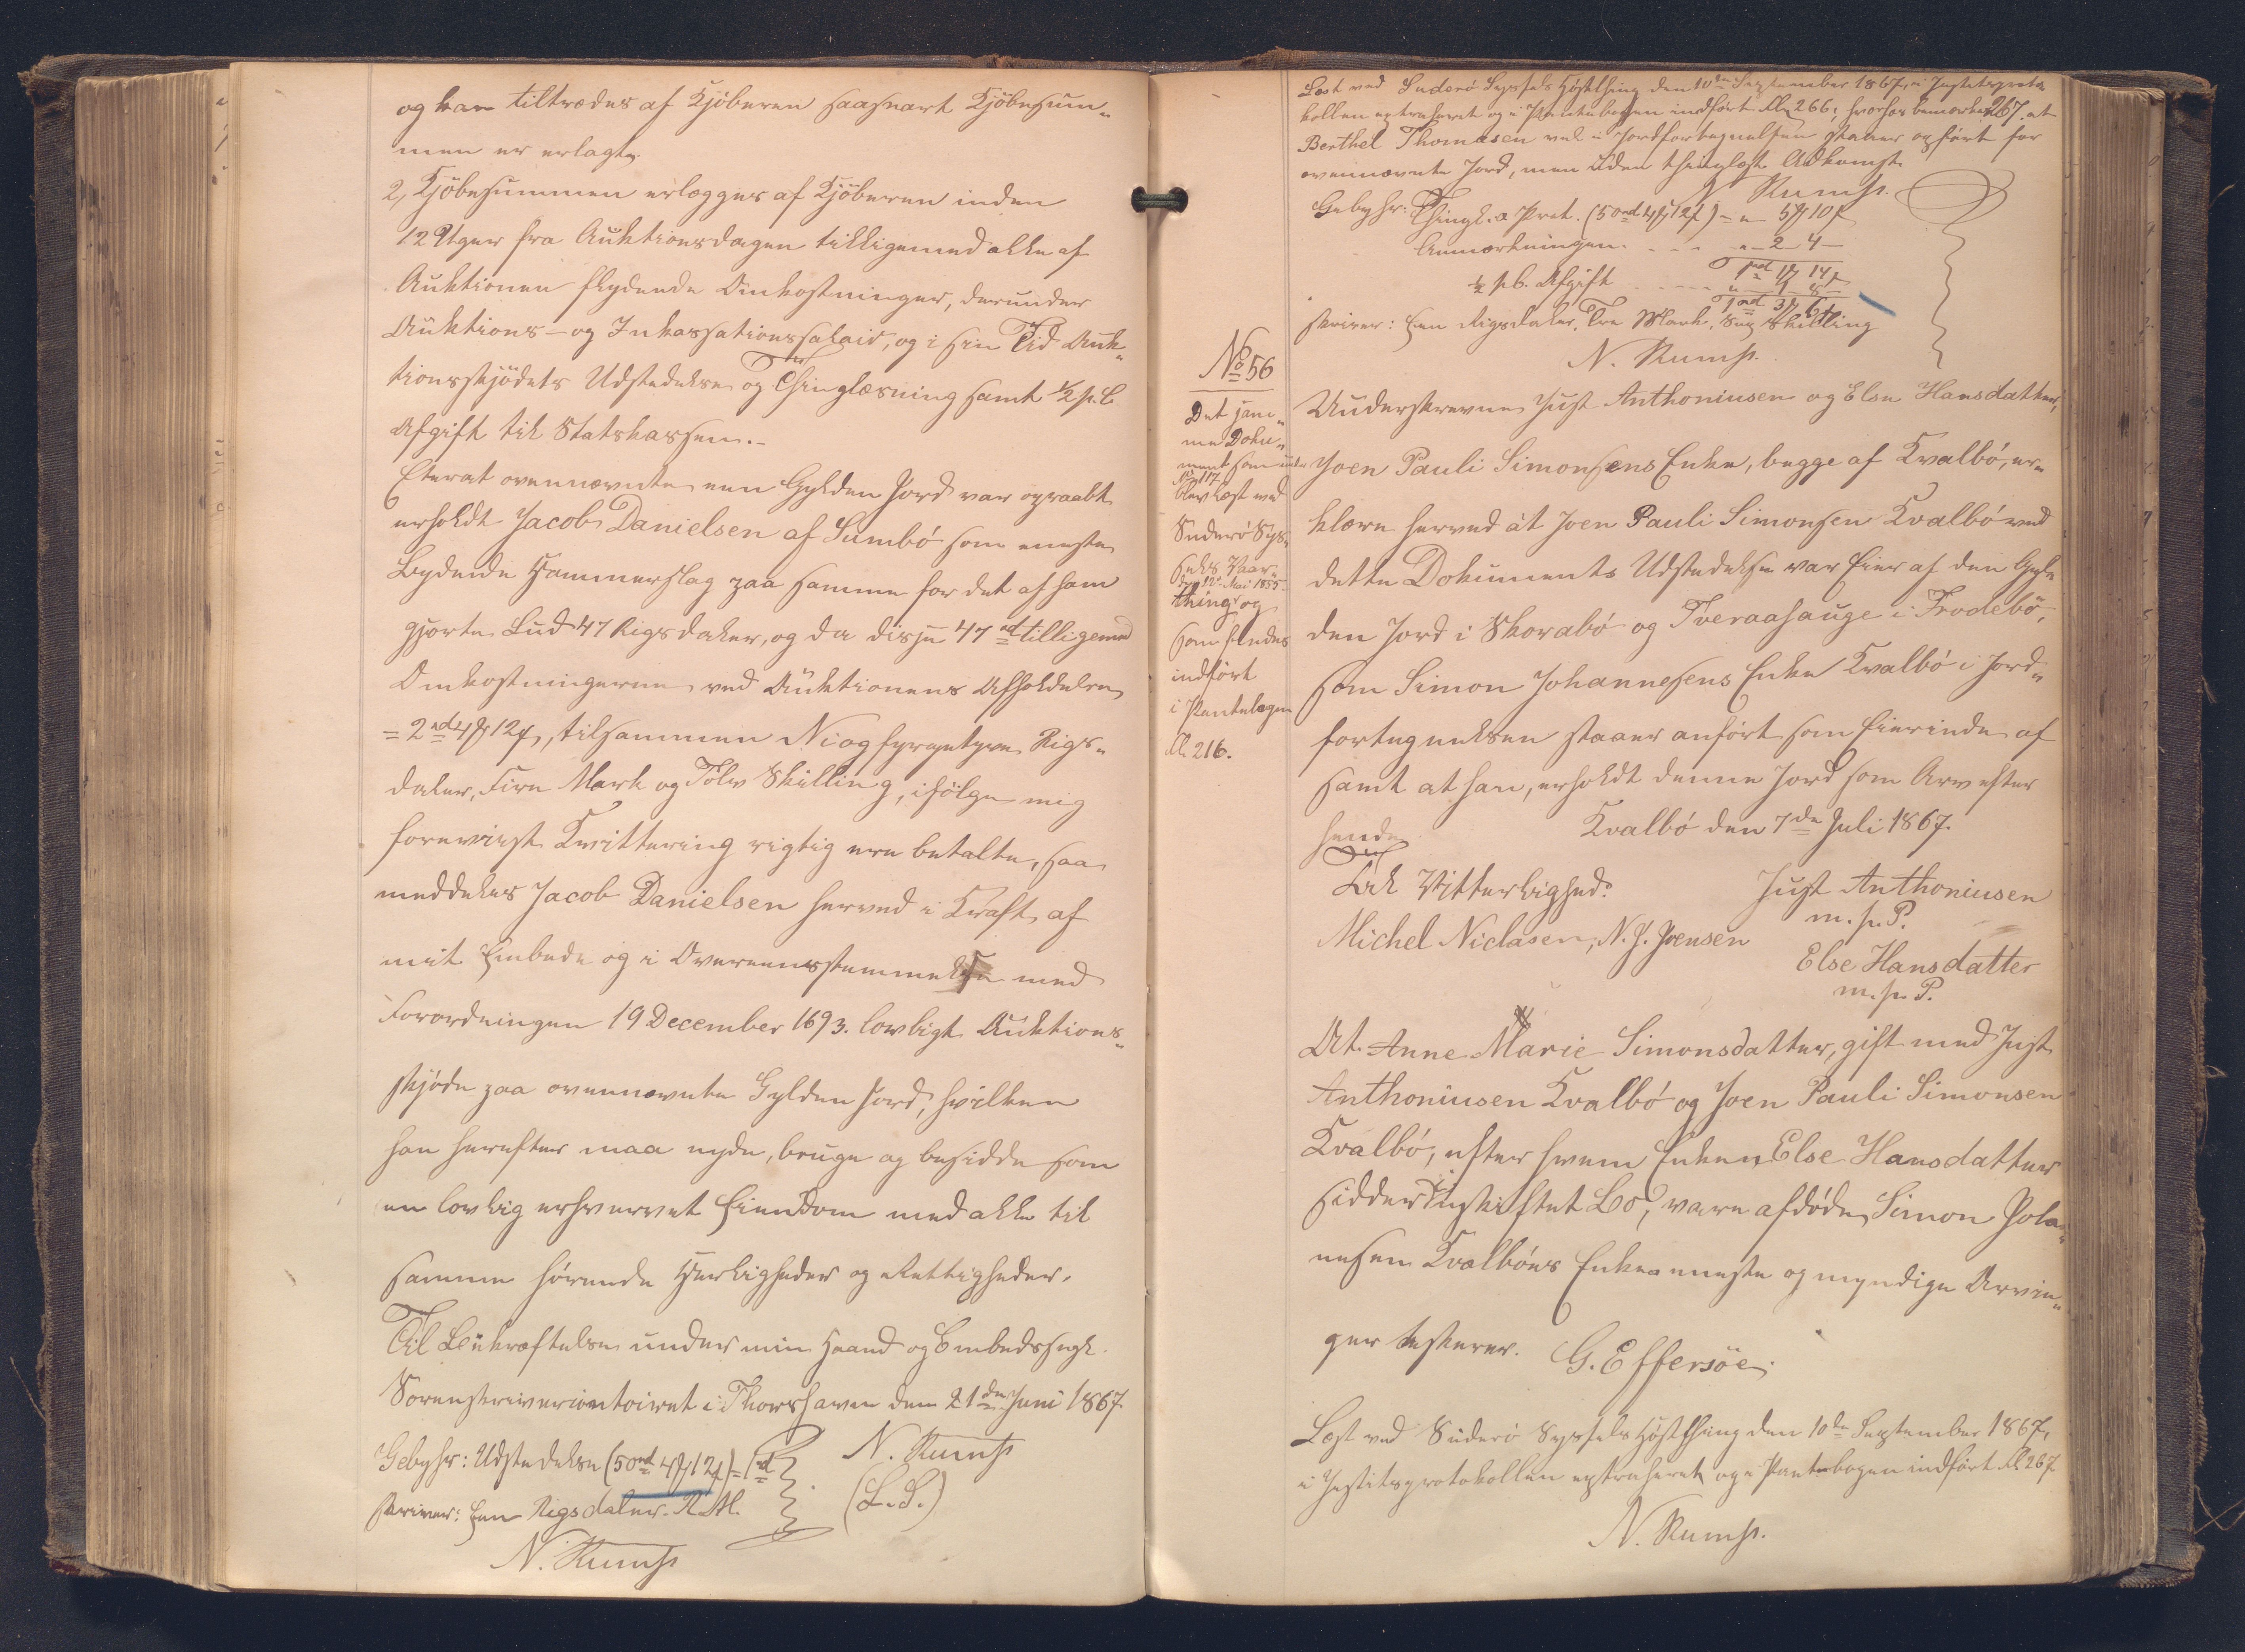 og kan tiltrædes af Kjöberen saasnart Kjöbesum„
men er erlagt.
2, Kjöbesummen erlægges af Kjöberen inden
12 Uger fra Auktionsdagen tilligemed alle af
Auktionen flydende Omkostninger, derunder
Auktions- og Inkassationssalair, og i sin Tid Auk„
tionsskjödets Udstedelse og Thinglæsning samt ½ p.C.
Afgift til Statskassen.-
Efterat ovennævnte een Gylden Jord var opraabt
erholdt Jacob Danielsen af Sumbö som eneste
Bydende Hammerslag paa samme for det af ham
gjorte Bud 47 Rigsdaler, og da disse 47 rd tilligemed
Omkostningerne ved Auktionens Afholdelse
= 2 rd 4 ₰ 12 ſ, tilsammen Niogfyrgetyve Rigs„
daler, Fire Mark og Tolv Skilling, ifölge mig
foreviist Kvittering rigtig ere betalte, saa
meddeles Jacob Danielsen herved i Kraft af
mit Embede og i Overeensstemmelse med
Forordningen 19 December 1693. lovligt Auktions„
skjöde paa ovennævnte Gylden Jord, hvilken
han herefter maa nyde, bruge og besidde som
en lovlig erhvervet Eiendom med alle til
samme hörende Herligheder og Rettigheder.
Til Bekræftelse under min Haand og Embedssegl.
Sorenskrivericontoiret i Thorshavn den 21de Juni 1867.
Gebyhr: Udstedelse (50 rd 4 ₰ 12 ſ) = 1 rd N. Rump
skriver: Een Rigsdaler. R.M. (L.S.)
N. Rump
Læst ved Suderö Syssels Höstthing den 10de September 1867, i Justitsproto
kollen extraheret og i Pantebogen indfört Fol. 266, hvorhos bemærkes 267. at
Berthel Thomasen vel i Jordfortegnelsen staaer opfört for
ovennævnte Jord, men uden thinglæst Adkomst.
N. Rump.
Gebyhr: Thingl. a Prot. (50 rd 4 ₰ 12 ſ) = „ 5 ₰ 10 ſ
Anmærkningen . . . „ - 2 - 4 -
1 rd 1 ₰ 14 ſ
½ p.C. Afgift . . . „ 1 - 8 -
1 rd 3 ₰ 6 ſ
skriver: Een Rigsdaler, Tre Mark, Sex Skilling
N. Rump.
No 56
Det sam„
me Doku„
ment som under
No 117
blev læst ved
Suderö Sys„
sels Vaar„
den 12 Mai 1855
thing og
som findes
indfört
i Pantebogen
Fol. 216.
Underskrevne Just Anthoniusen og Else Hansdatter,
Joen Pauli Simonsens Enke, begge af Kvalbö, er„
klære herved at Joen Pauli Simonsen Kvalbö ved
dette Dokuments Udstedelse var Eier af den Gyl„
den Jord i Skorabö og Tveraahauge i Frodebö,
som Simon Johannesens Enke Kvalbö i Jord„
fortegnelsen staaer anfört som Eierinde af
samt at han erholdt denne Jord som Arv efter
hende. Kvalbö den 7de Juli 1867.
Til Vitterlighed: Just Anthoniusen
m. p. P.
Michel Niclasen, N. J. Joensen
Else Hansdatter
m. p. P.
At Anne Marie Simonsdatter, gift med Just
Anthoniusen Kvalbö og Joen Pauli Simonsen
Kvalbö, efter hvem Enken Else Hansdatter
sidder i uskiftet Bo, vare afdöde Simon Joha„
nesen Kvalböes Enkes eneste og myndige Arvin„
ger attesterer. G. Effersöe.
Læst ved Suderö Syssels Höstthing den 10de September 1867,
i Justitsprotokollen extraheret og i Pantebogen indfört Fol. 267
N. Rump.